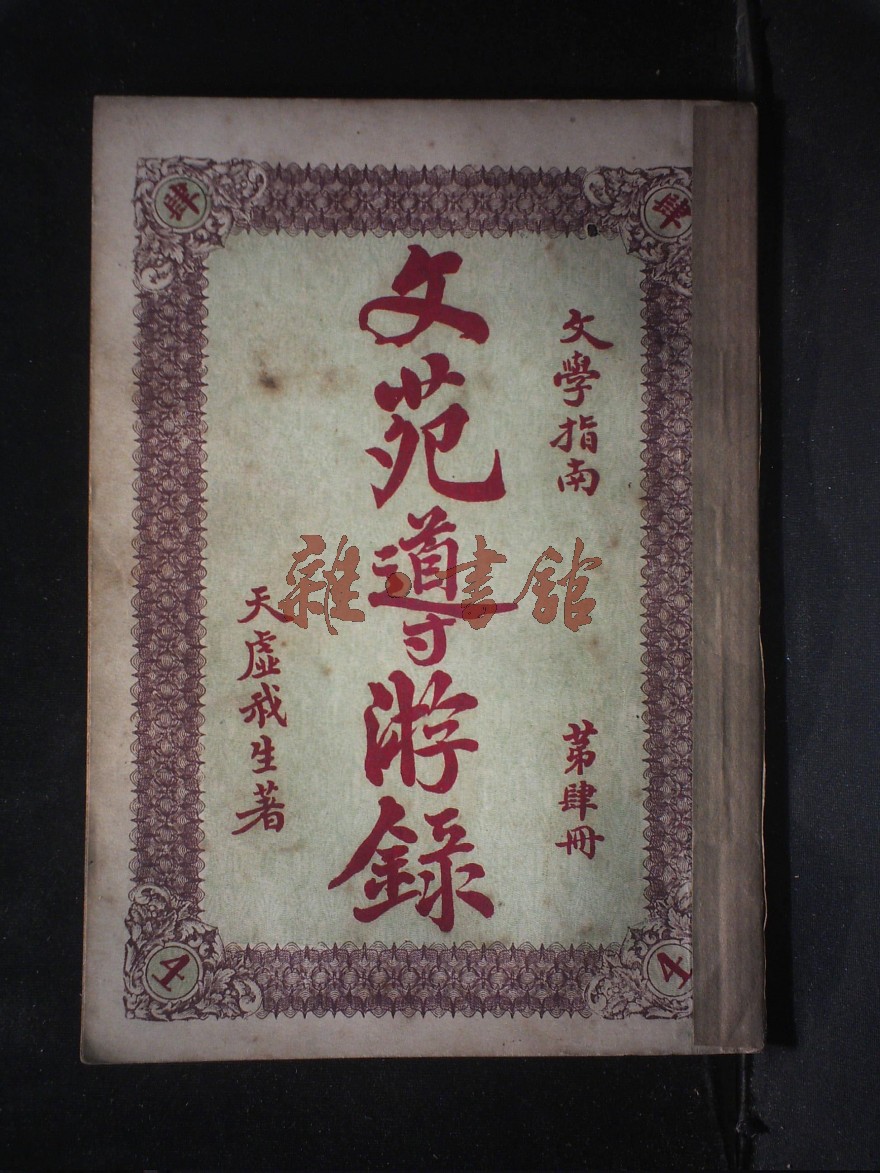 文學指南
第肆冊
文苑導游錄
天虛我生著
肆
肆
4
4
雜書館